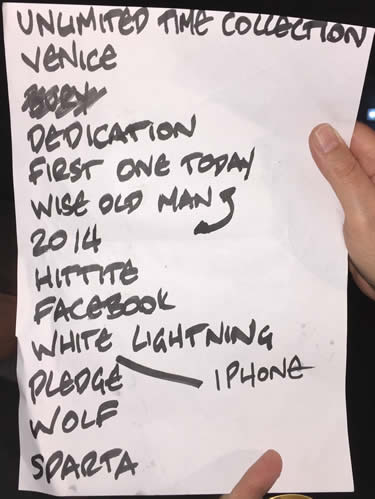 UNLIMITED TIME COLLECTION
VENICE
DEDICATION
FIRST ONE TODAY
WISE OLD MAN
2014
HITTITE
FACEBOOK
WHITE LIGHTNING
PLEDGE IPHONE
WOLF
SPARTA